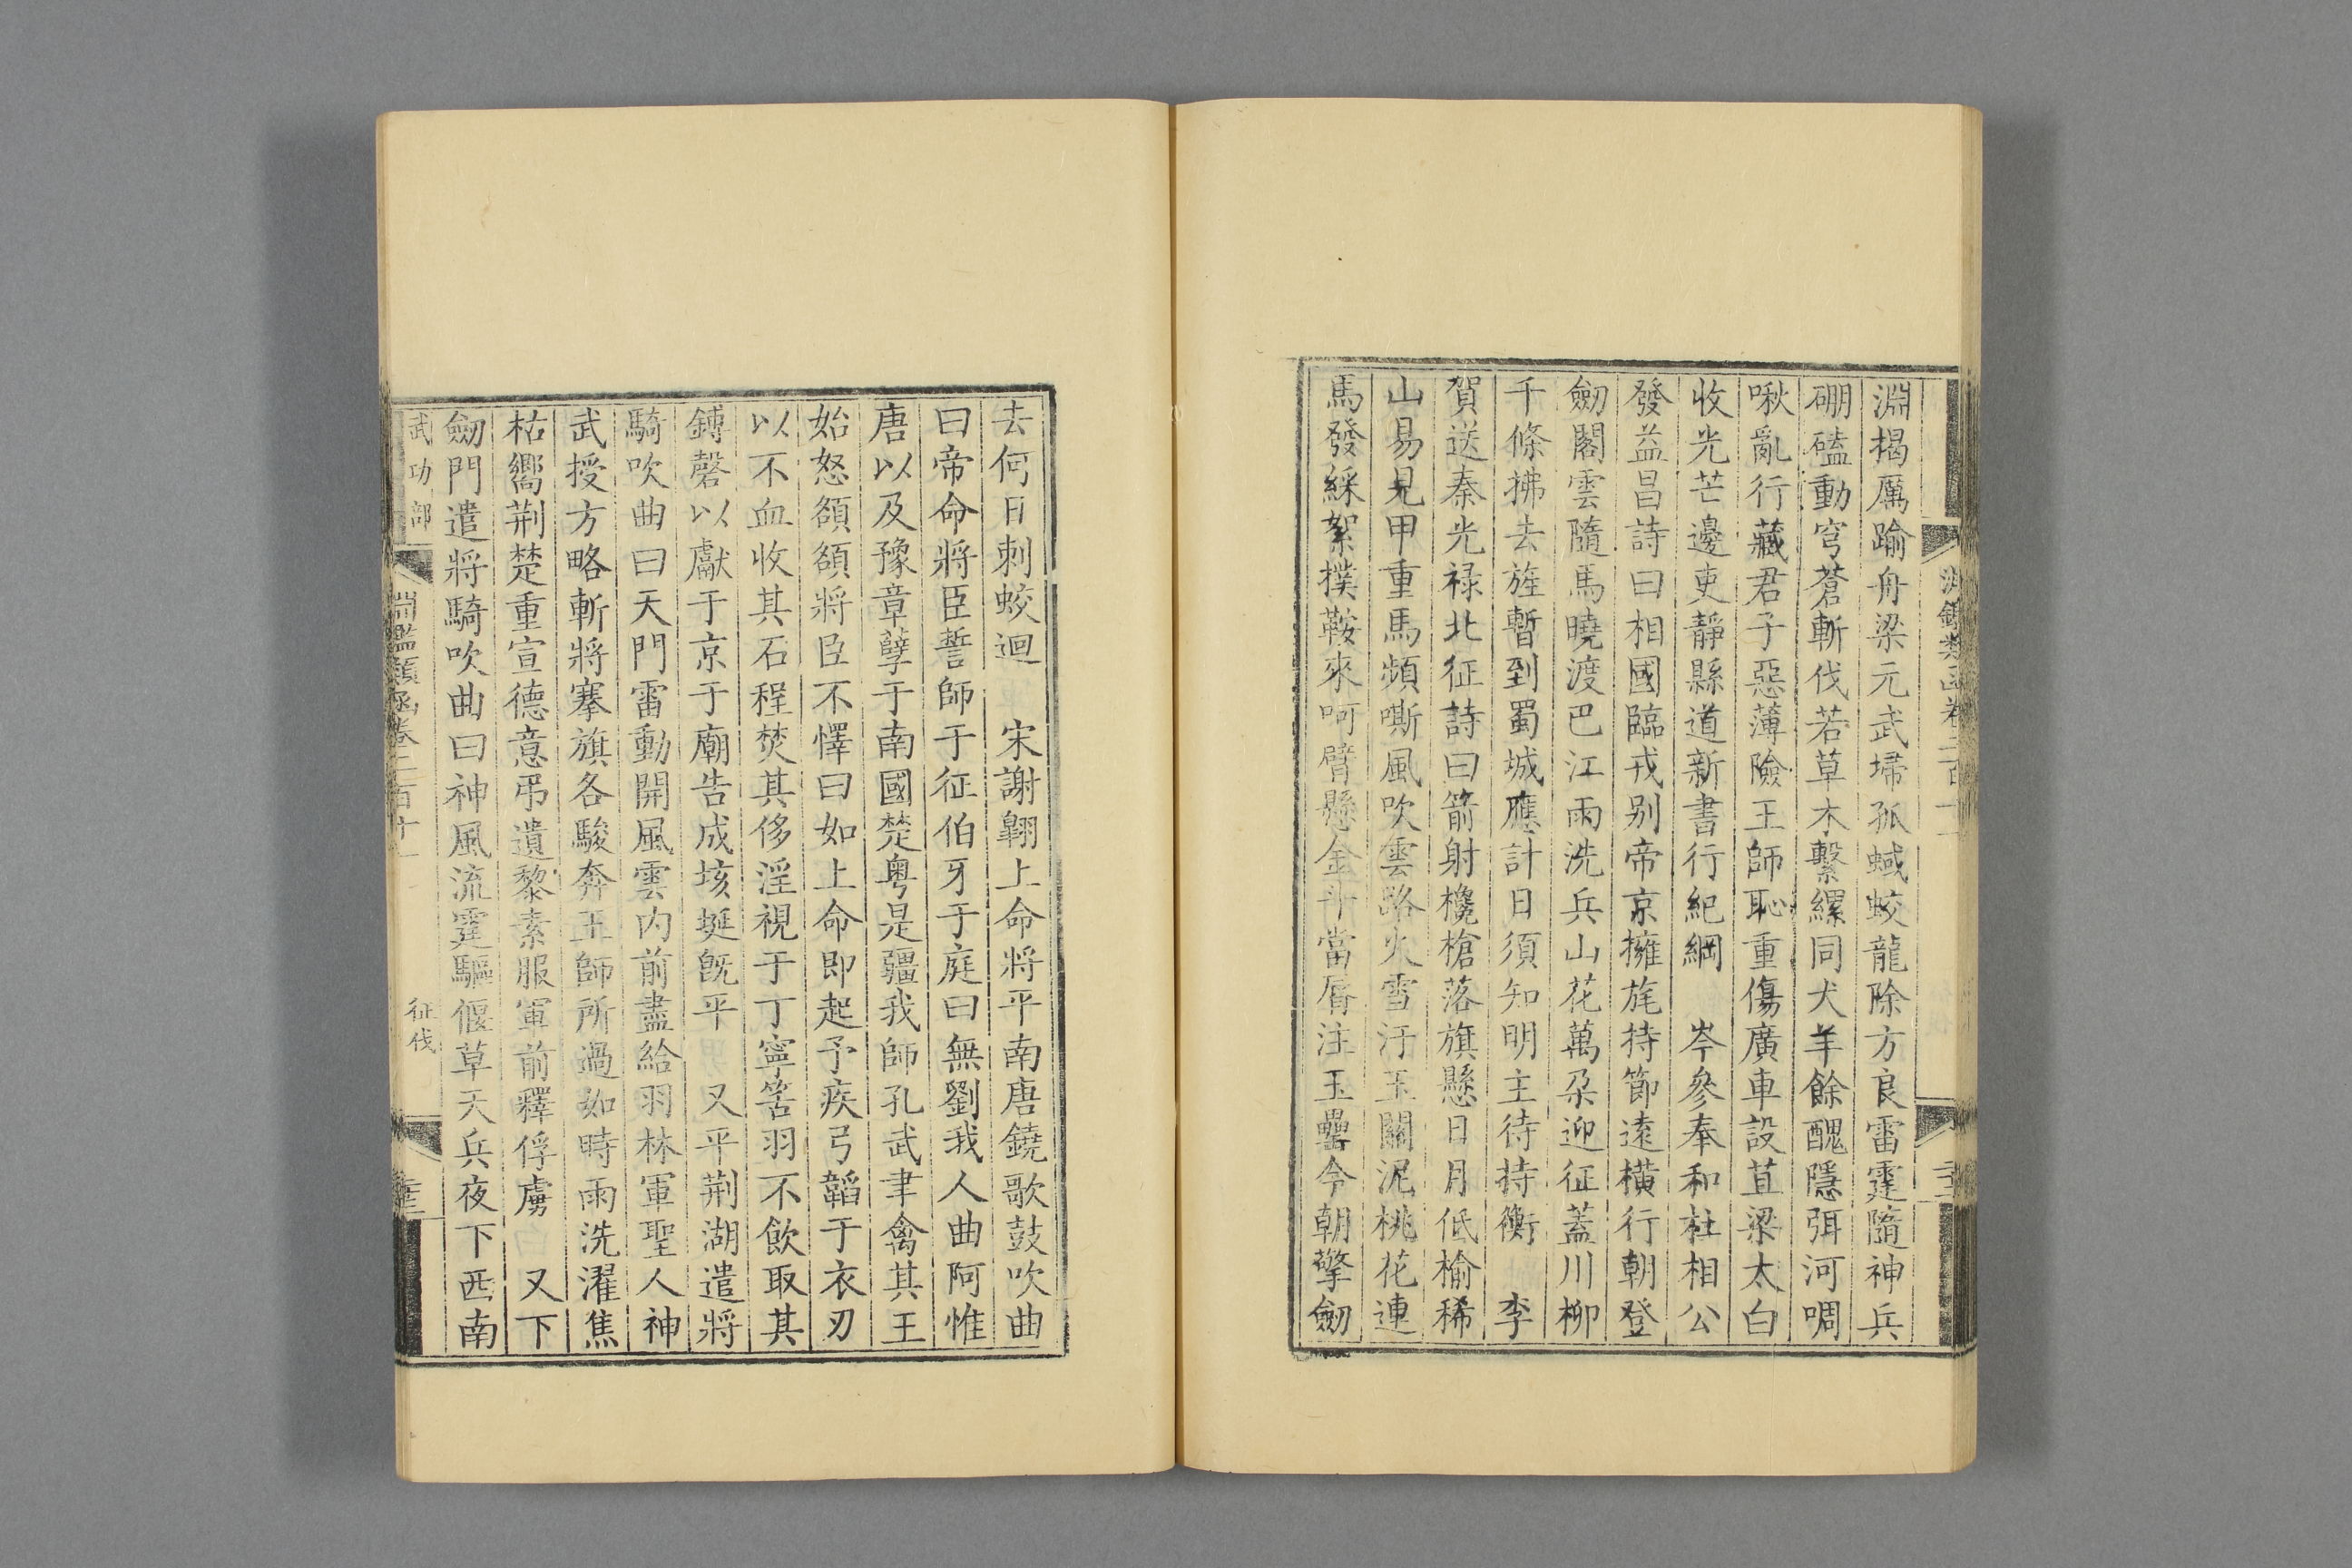 淵揭厲踰舟梁元武埽孤蜮蛟龍除方良雷霆隨神兵
硼磕動穹蒼斬伐若草木繫縲同犬羊餘醜隱弭河啁
啾亂行藏君子惡薄險王師恥重傷廣車設苴梁太白
收光芒邊吏靜縣道新書行紀綱　岑參奉和杜相公
發益昌詩曰相國臨戎别帝京擁旄持節遠橫行朝登
劒閣雲隨馬曉渡巴江雨洗兵山花萬朶迎征蓋川柳
千條拂去旌暫到蜀城應計日須知明主待持衡　李
賀送秦光禄北征詩曰箭射欃槍落旗懸日月低榆稀
山易見甲重馬頻嘶風吹雲路火雪汙玉關泥桃花連
馬發綵絮撲鞍來呵臂懸金斗當脣注玉罍今朝擎劒
去何日刺蛟迴　宋謝翺上命將平南唐鐃歌鼓吹曲
曰帝命將臣誓師于征伯牙于庭曰無劉我人曲阿惟
唐以及豫章孽于南國楚粤是疆我師孔武聿禽其王
始怒頟頟將臣不懌曰如上命即起予疾弓韜于衣刃
以不血收其石程焚其侈淫視于丁寧笘羽不飲取其
鎛磬以獻于京于廟告成垓埏旣平　又平荆湖遣將
騎吹曲曰天門雷動開風雲内前盡給羽林軍聖人神
武授方略斬將搴旗各駿奔王師所過如時雨洗濯焦
枯嚮荆楚重宣德意弔遺黎素服軍前釋俘虜　又下
劒門遣將騎吹曲曰神風流霆驅偃草天兵夜下西南
武功部　淵鑑類函卷二百十一　征伐